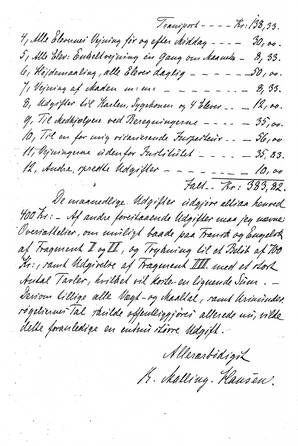 Transport - - - - Kr: 138, 33.
4, Alle Elevernes Vejning før og efter Middag - - - - 30, 00.
5, Alle Elev: Enkeltvejning en Gang om Maaneden - - 8, 33.
6, Højdemaaling, alle Elever daglig - - - - 50, 00.
7, Vejning af Maden - - - - 8, 33.
8, Udgifter til Karlen, Sygekonen og 4 Elever - - 12, 00.
9, Til Medhjælpen ved Beregningerne - - - - 35, 00.
10, Til en for mig vicarierende Inspecteur - - - 56, 00.
11, Vejningerne udenfor Institutet - - - - 35, 83
12, Andre, spredte Udgifter - - - - 10, 00.
Kr: 383, 82.
De maanedlige Udgifter udgjør altsaa henved
400 Kr: - Af andre forestaaende Udgifter maa jeg nævne
Oversættelser, om muligt baade paa Fransk og Engelsk
af Fragment I og II, og Trykning til et Beløb af 700
Kr:, samt Udgivelse af Fragment III med et stort
Antal Tavler, hvilket vil koste en lignende Sum. -
Dersom tillige alle Vægt- og Maaltal, samt
Tal skulde offentliggjøres allerede nu, vilde
dette foranledige en endnu større Udgift.
Allerærbødigst
R. Malling-Hansen.